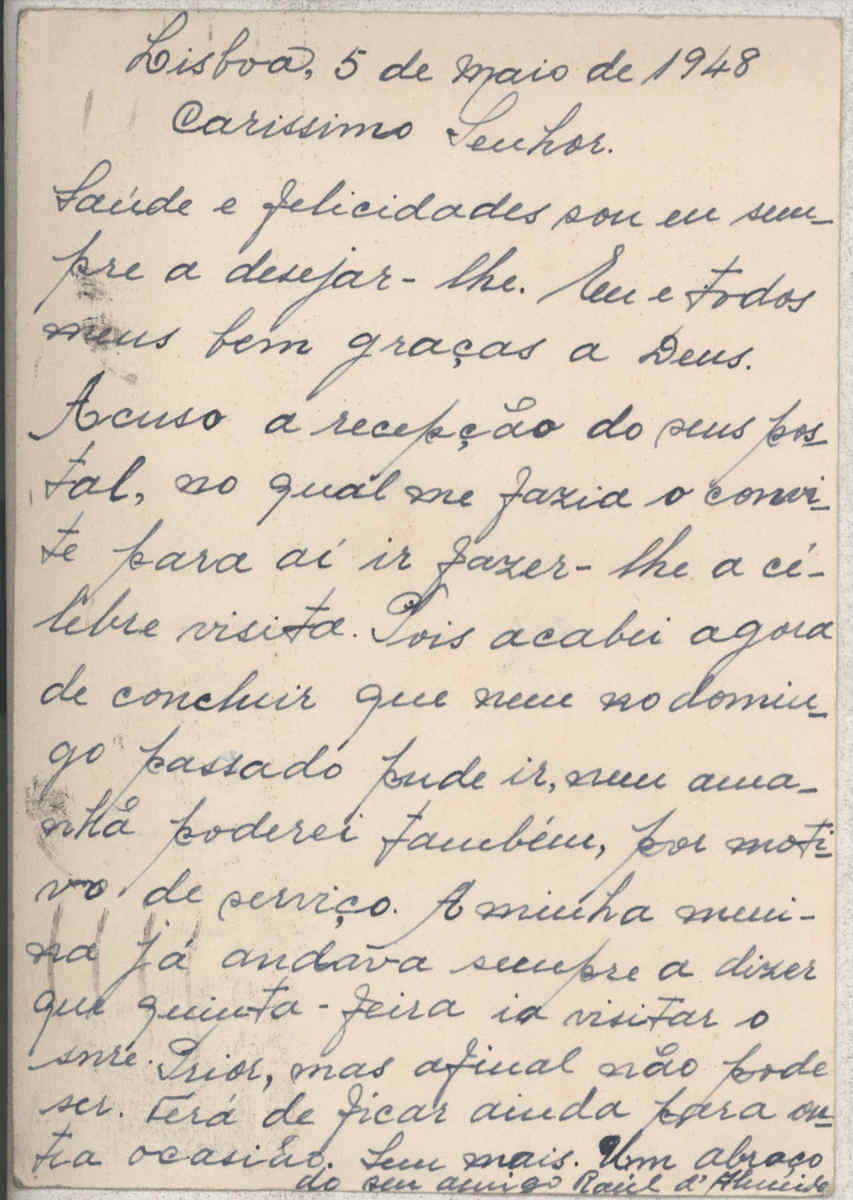 Lisboa, 5 de maio de 1948
Carissimo Senhor.
Saúde e felicidades sou eu sem-
pre a desejar-lhe. Eu e todos
meus bem graças a Deus.
Acuso a recepção do seus pos-
tal, no qual me fazia o convi-
te para aí ir fazer-lhe a cé-
lebre visita. Pois acabei agora
de concluir que nem no domin-
go passado pude ir, nem ama-
nhã poderei também, por moti-
vo de serviço. A minha meni-
na já andava sempre a dizer
que quinta-feira ia visitar o
snre. Prior, mas afinal não pode
ser. Terá de ficar ainda para ou-
tra ocasião. Sem mais. Um abraço
do seu amigo Raúl d'Almeida